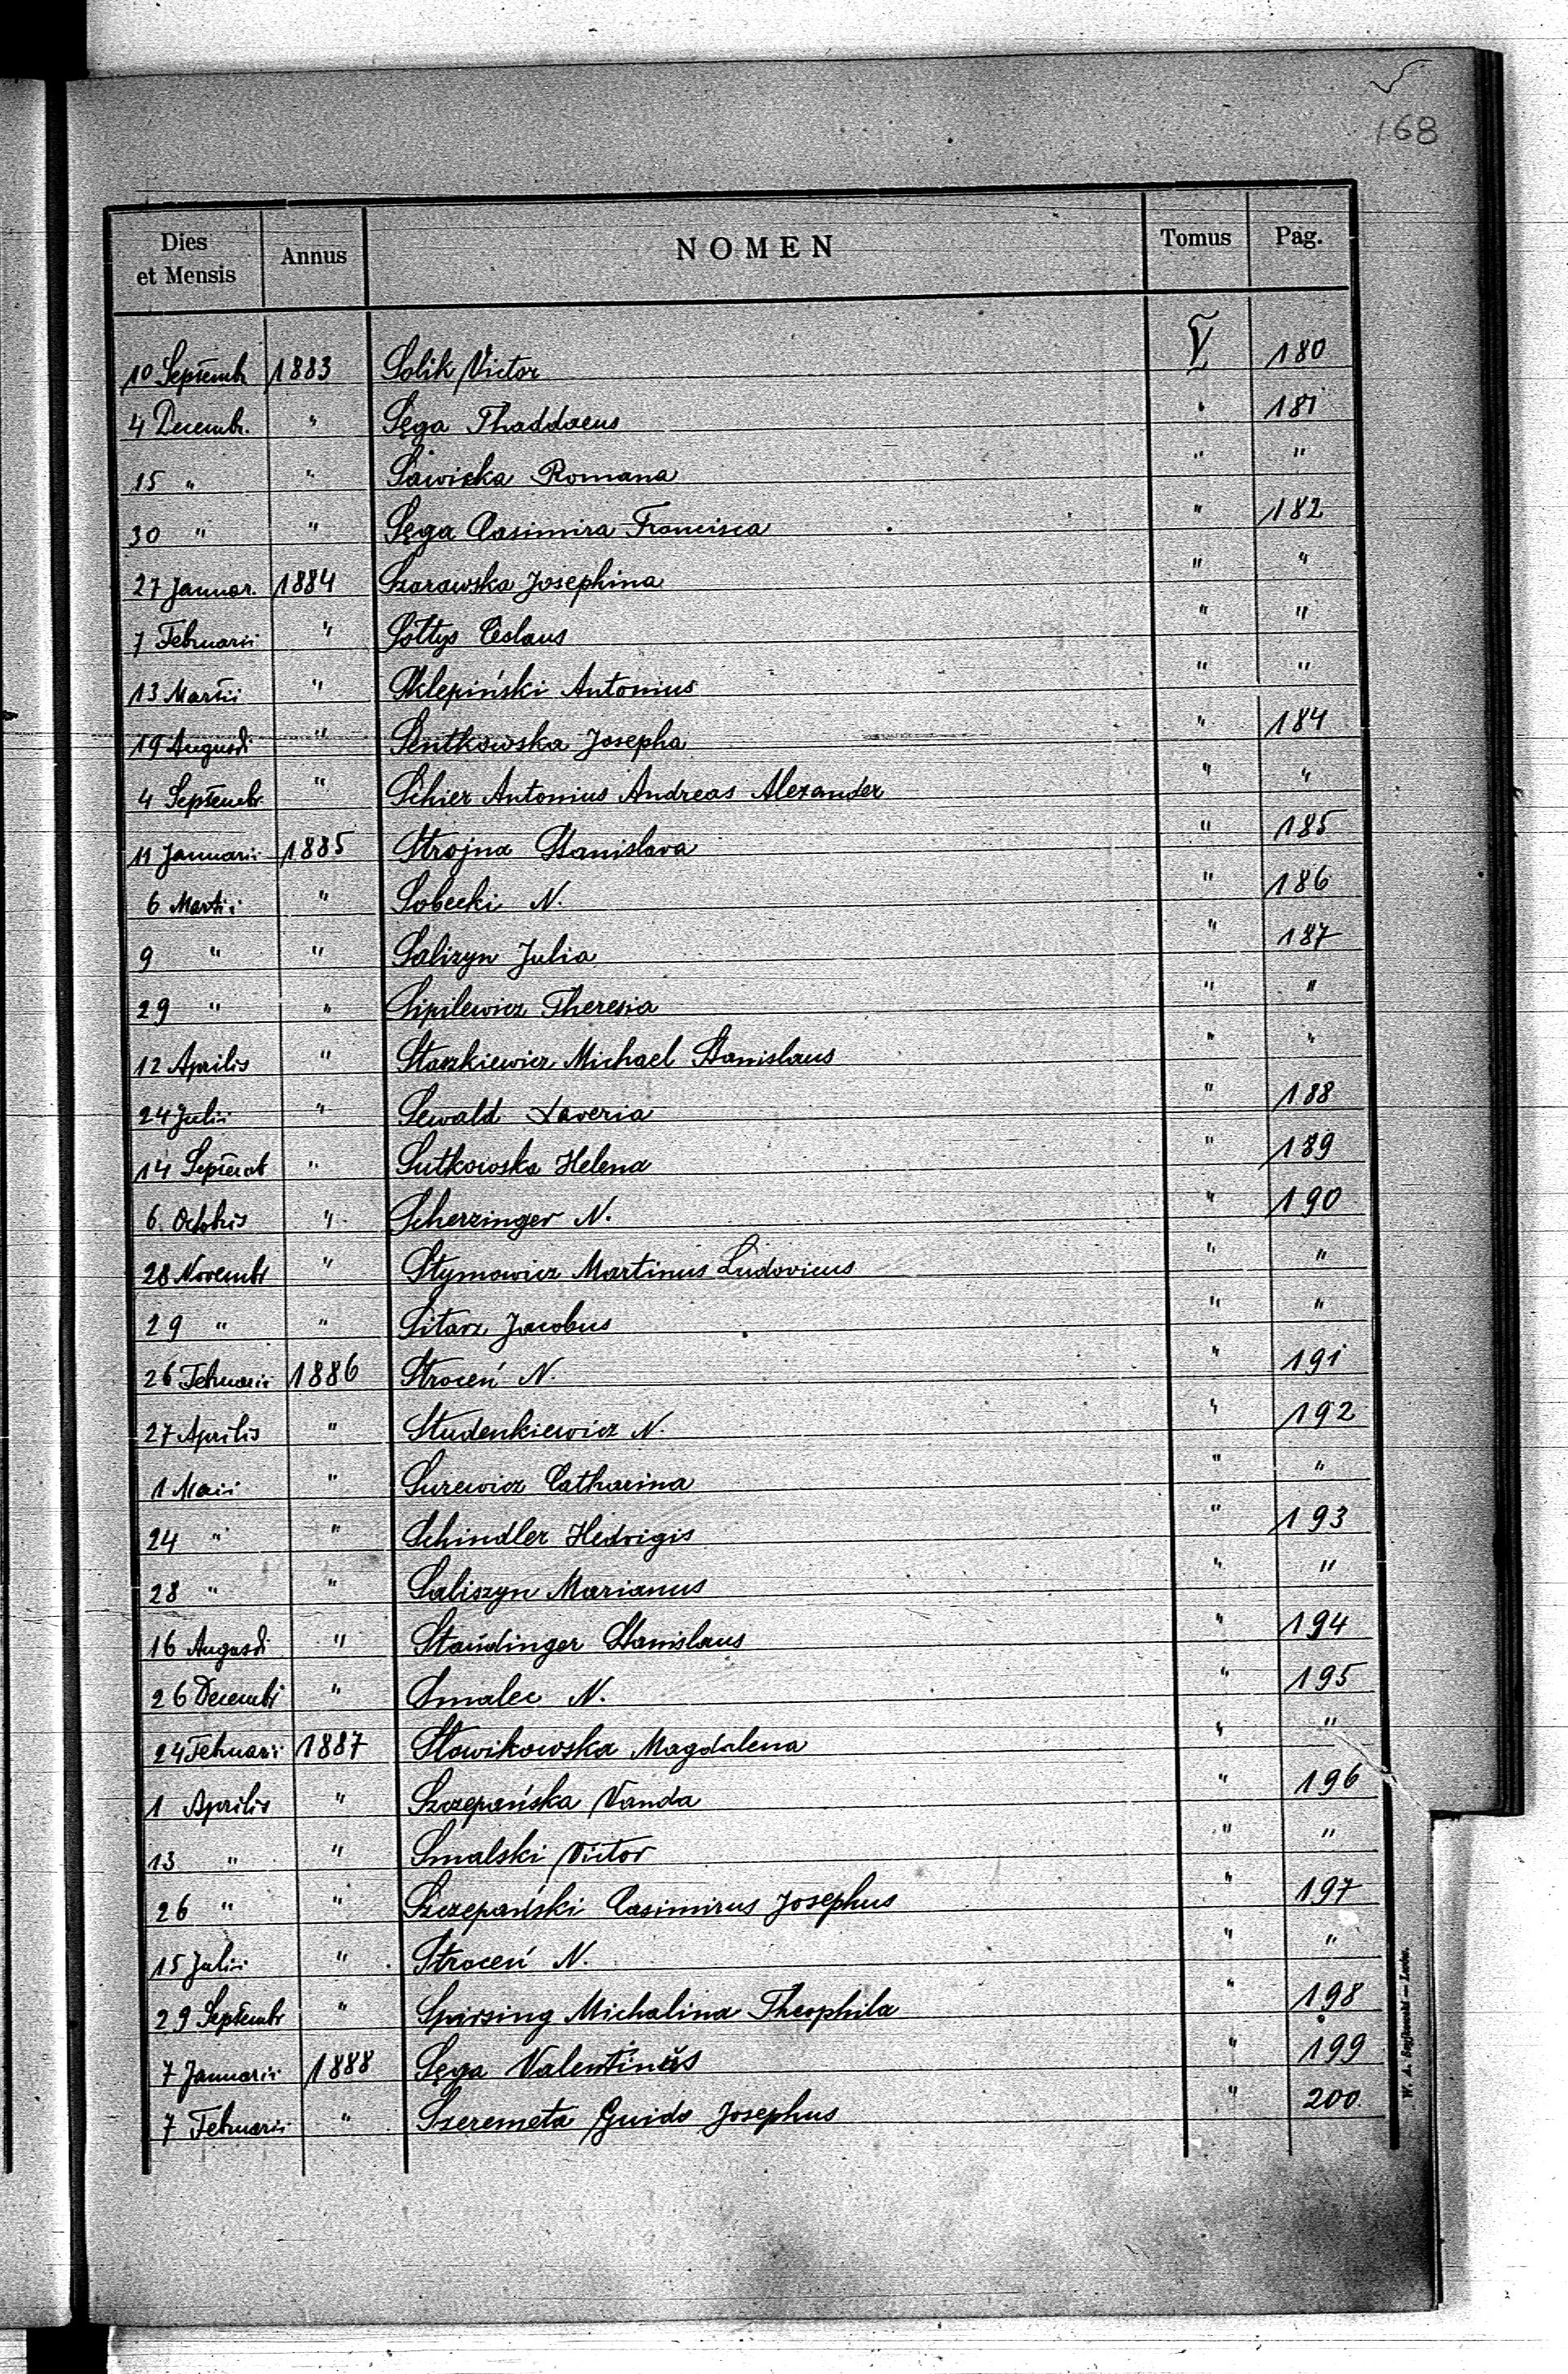 168
Dies et Mensis Annus NOMEN Tomus Pag.
10 Septemb. 1883 Solik Victor V 180
4 Decemb. " Sęga Thaddaeus " 181
15 " " Sawicka Romana " "
30 " " Sęga Casimira Francisca " 182
27 Januar. 1884 Szarawska Josephina " "
7 Februarii " Sołtys Ceslaus " "
13 Martii " Sklepiński Antonius " "
19 Augusti " Sentkowska Josepha " 184
4 Septembr. " Schier Antonius Andreas Alexander " "
11 Januarii 1885 Strojna Stanislava " 185
6 Martii " Sobecki N. " 186
9 " " Salizyn Julia " 187
29 " " Sipilewicz Theresia " "
12 Aprilis " Staszkiewicz Michael Stanislaus " "
24 Julii " Sewald Xaveria " 188
14 Septemb " Sutkowska Helena " 189
6. Octobris " Scherzinger N. " 190
28 Novembr " Stymowicz Martinus Ludovicus " "
29 " " Sitarz Jacobus " "
26 Februarii 1886 Stroceń N. " 191
27 Aprilis " Studenkiewicz N. " 192
1 Maii " Surewicz Catharina " "
24 " " Schindler Hedvigis " 193
28 " " Saliszyn Marianus " "
16 Augusti " Staudinger Stanislaus " 194
26 Decembr " Smalec N. " 195
24 Februarii 1887 Słowikowska Magdalena " "
1 Aprilis " Szczepańska Vanda " 196
13 " " Smalski Victor " "
26 " " Szczepański Casimirus Josephus " 197
15 Julii " Stroceń N. " "
29 Septembr " Spirsing Michalina Theophila " 198
7 Januarii 1888 Sęga Valentinus " 199
7 Februarii " Szeremeta Guido Josephus " 200